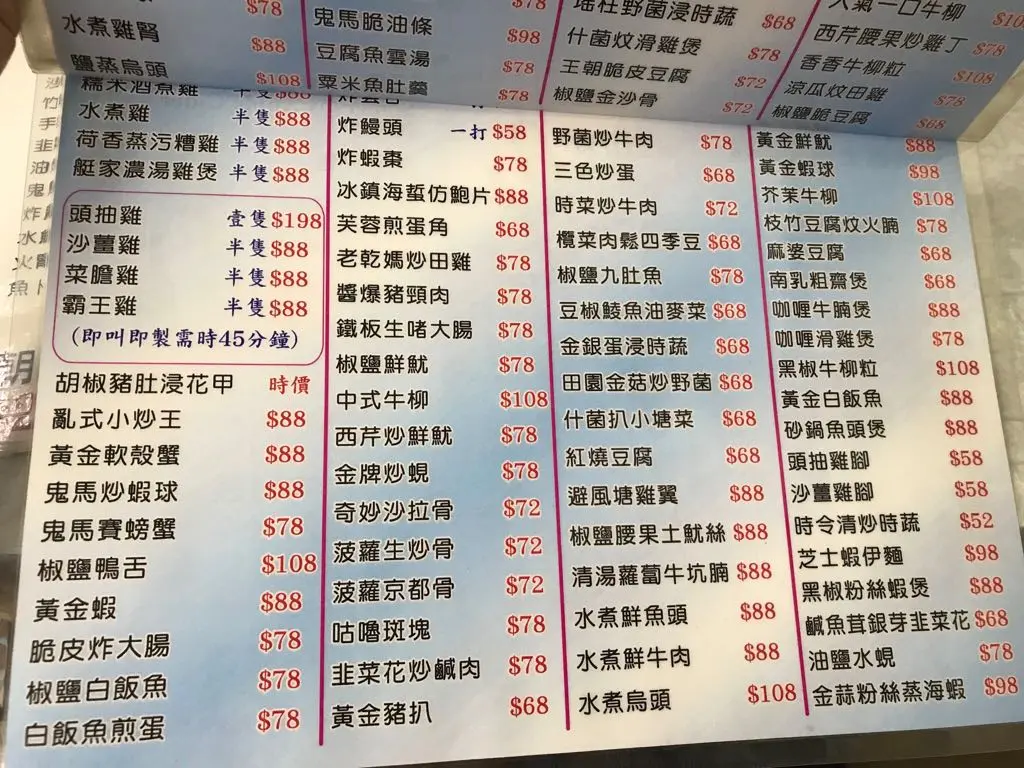 $78
水煮雞腎 $88
鹽蒸烏頭 $108
$78
鬼馬脆油條 $98
豆腐魚雲湯 $78
粟米魚肚羹 $78
瑤柱野菌浸時蔬 $68
什菌炆滑雞煲 $78
王朝脆皮豆腐 $72
椒鹽金沙骨 $72
人氣一口牛柳
西芹腰果炒雞丁 $78
香香牛柳粒 $108
涼瓜炆田雞 $78
椒鹽脆豆腐 $68
糯米酒煮雞 半隻$88
水煮雞 半隻$88
荷香蒸污糟雞 半隻$88
艇家濃湯雞煲 半隻$88
頭抽雞 壹隻$198
沙薑雞 半隻$88
菜膽雞 半隻$88
霸王雞 半隻$88
(即叫即製需時45分鐘)
胡椒豬肚浸花甲 時價
亂式小炒王 $88
黃金軟殼蟹 $88
鬼馬炒蝦球 $88
鬼馬賽螃蟹 $78
椒鹽鴨舌 $108
黃金蝦 $88
脆皮炸大腸 $78
椒鹽白飯魚 $78
白飯魚煎蛋 $78
炸饅頭 一打$58
炸蝦棗 $78
冰鎮海蜇仿鮑片 $88
芙蓉煎蛋角 $68
老乾媽炒田雞 $78
醬爆豬頸肉 $78
鐵板生啫大腸 $78
椒鹽鮮魷 $78
中式牛柳 $108
西芹炒鮮魷 $78
金牌炒蜆 $78
奇妙沙拉骨 $72
菠蘿生炒骨 $72
菠蘿京都骨 $72
咕嚕斑塊 $78
韭菜花炒鹹肉 $78
黃金豬扒 $68
野菌炒牛肉 $78
三色炒蛋 $68
時菜炒牛肉 $72
欖菜肉鬆四季豆 $68
椒鹽九肚魚 $78
豆椒鯪魚油麥菜 $68
金銀蛋浸時蔬 $68
田園金菇炒野菌 $68
什菌扒小塘菜 $68
紅燒豆腐 $68
避風塘雞翼 $88
椒鹽腰果土魷絲 $88
清湯蘿蔔牛坑腩 $88
水煮鮮魚頭 $88
水煮鮮牛肉 $88
水煮烏頭 $108
黃金鮮魷 $88
黃金蝦球 $98
芥茉牛柳 $108
枝竹豆腐炆火腩 $78
麻婆豆腐 $68
南乳粗齋煲 $68
咖喱牛腩煲 $88
咖喱滑雞煲 $78
黑椒牛柳粒 $108
黃金白飯魚 $88
砂鍋魚頭煲 $88
頭抽雞腳 $58
沙薑雞腳 $58
時令清炒時蔬 $52
芝士蝦伊麵 $98
黑椒粉絲蝦煲 $88
鹹魚茸銀芽韭菜花 $68
油鹽水蜆 $78
金蒜粉絲蒸海蝦 $98